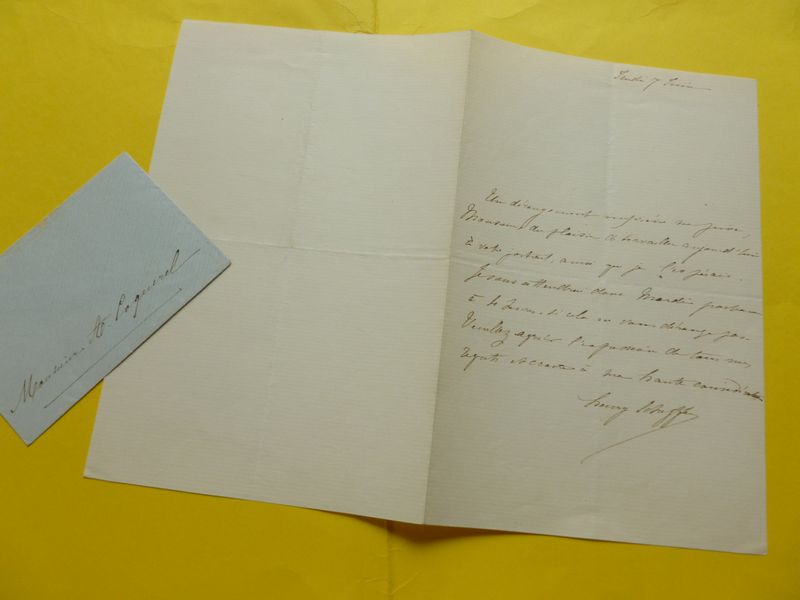 Jeudi 7 Juin
Un dérangement me prive,
Monsieur, du plaisir de travailler aujourd'hui
à votre portrait, ainsi que je l'espérais.
Je vous attendrai donc Mardi prochain
à 10 heures, si cela ne vous dérange pas
Veuillez agréer l'expression de tous mes
regrets et croire à ma haute considération
henry Scheffer
Monsieur At. Coquerel